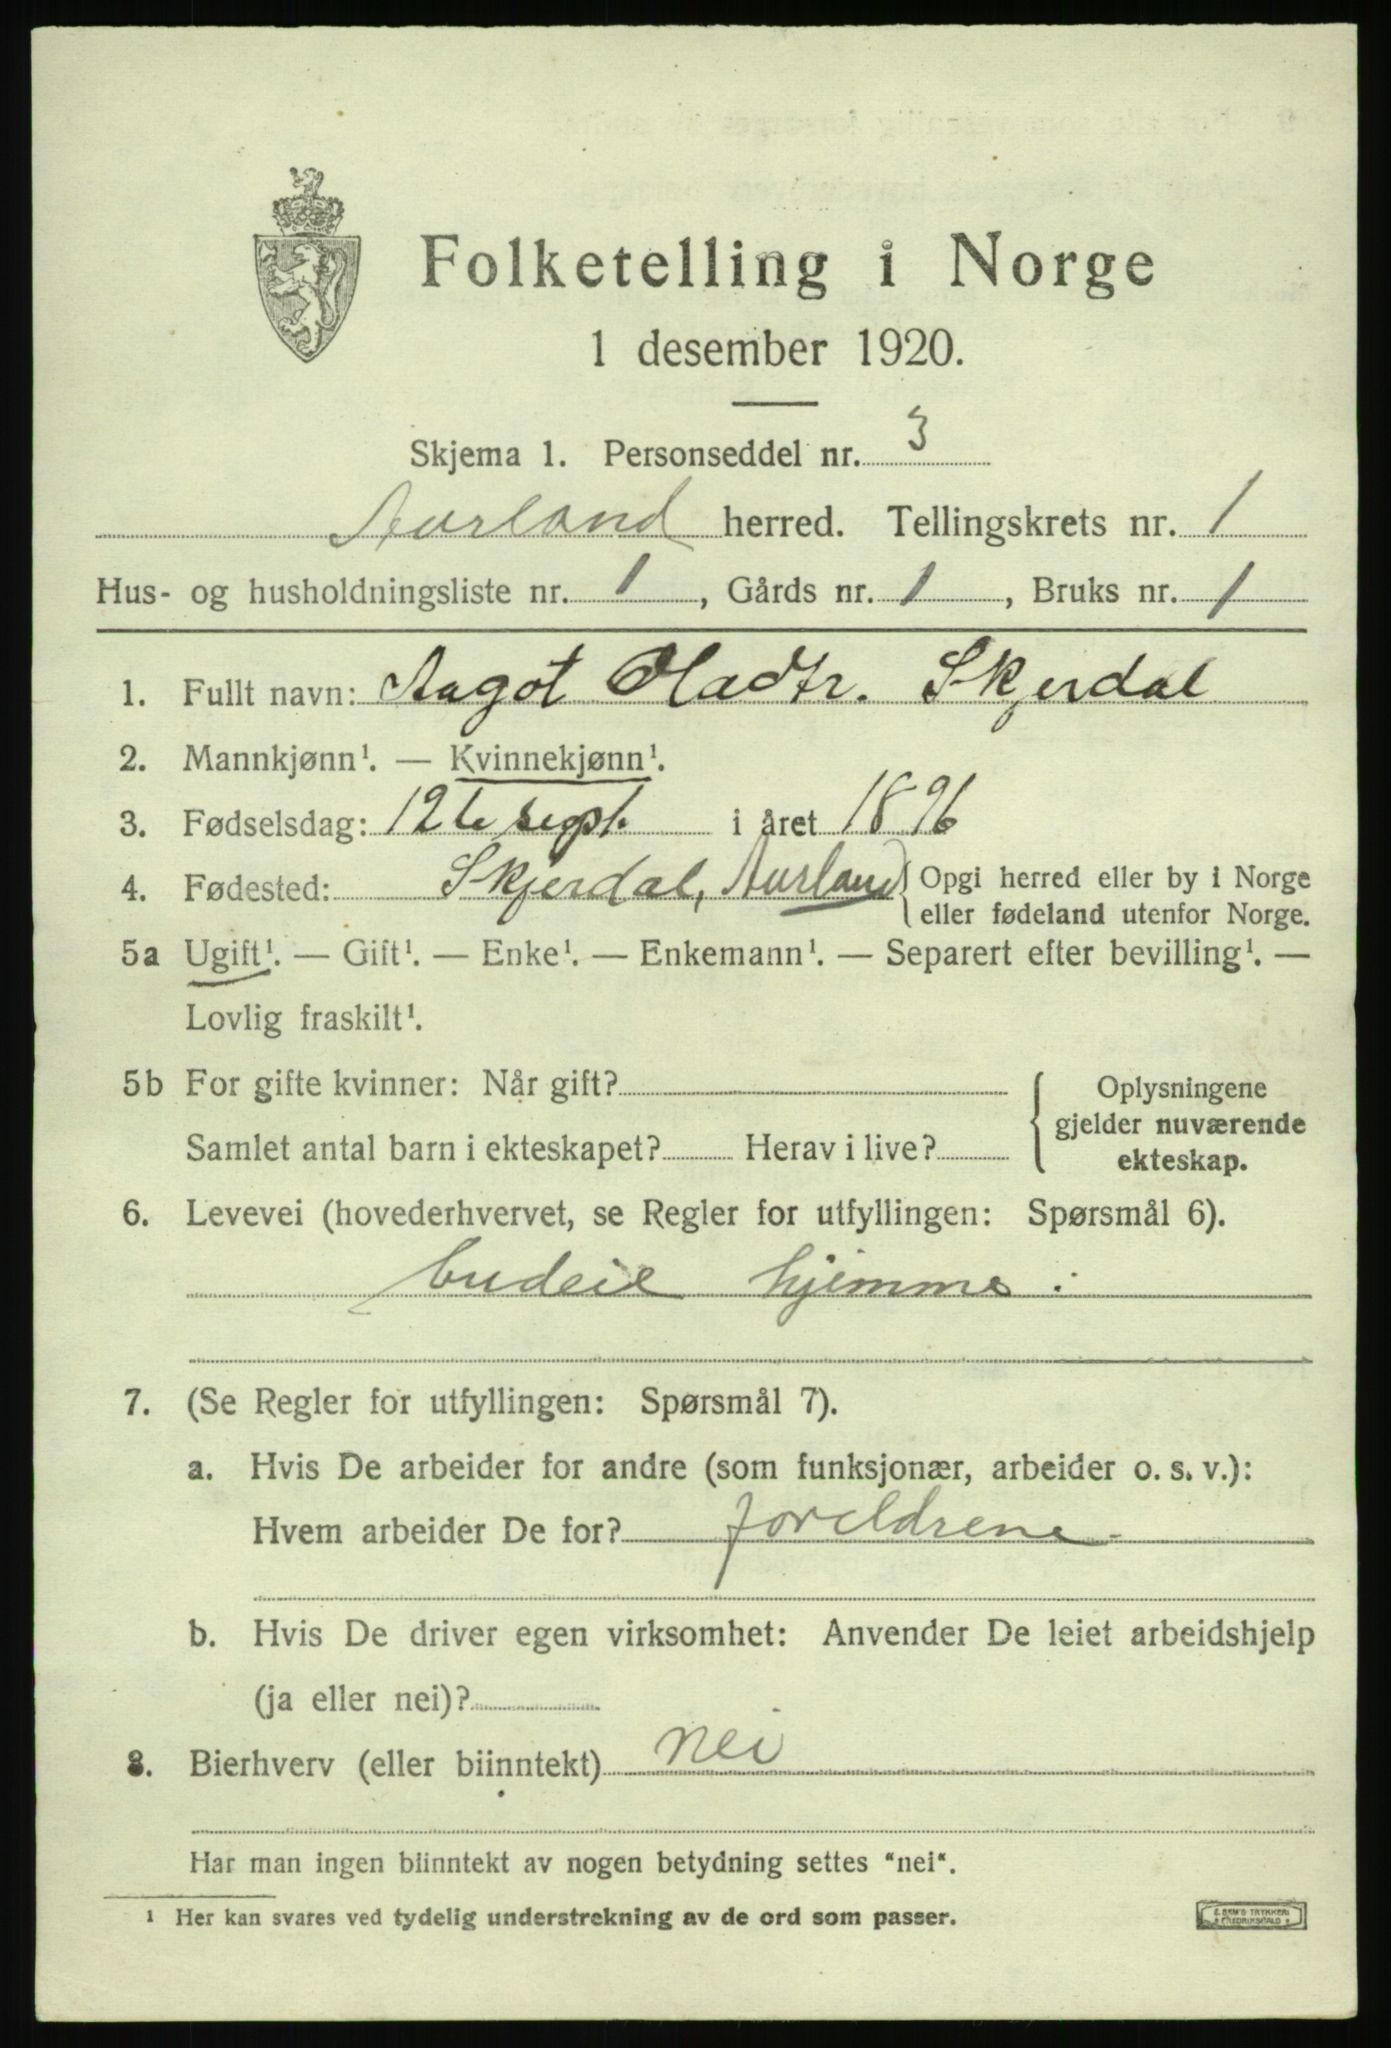 Folketelling i Norge
1 desember 1920.
Skjema 1. Personseddel nr. 3
Aurland herred. Tellingskrets nr. 1
Hus- og husholdningsliste nr. 1, Gårds nr. 1, Bruks nr. 1
1. Fullt navn: Aagot Oladtr. Skjerdal
2. Mannkjønn¹. — Kvinnekjønn¹.
3. Fødselsdag: 12te sept. i året 1896
4. Fødested: Skjerdal, Aurland { Opgi herred eller by i Norge
eller fødeland utenfor Norge.
5a Ugift¹. — Gift¹. — Enke¹. — Enkemann¹. — Separert efter bevilling¹. —
Lovlig fraskilt¹.
5b For gifte kvinner: Når gift?
Samlet antal barn i ekteskapet? Herav i live?
{ Oplysningene
gjelder nuværende
ekteskap.
6. Levevei (hovederhvervet, se Regler for utfyllingen: Spørsmål 6).
budeie hjemme.
7. (Se Regler for utfyllingen: Spørsmål 7).
a. Hvis De arbeider for andre (som funksjonær, arbeider o. s. v.):
Hvem arbeider De for? foreldrene
b. Hvis De driver egen virksomhet: Anvender De leiet arbeidshjelp
(ja eller nei)?
8. Bierhverv (eller biinntekt) nei
Har man ingen biinntekt av nogen betydning settes "nei".
¹ Her kan svares ved tydelig understrekning av de ord som passer.